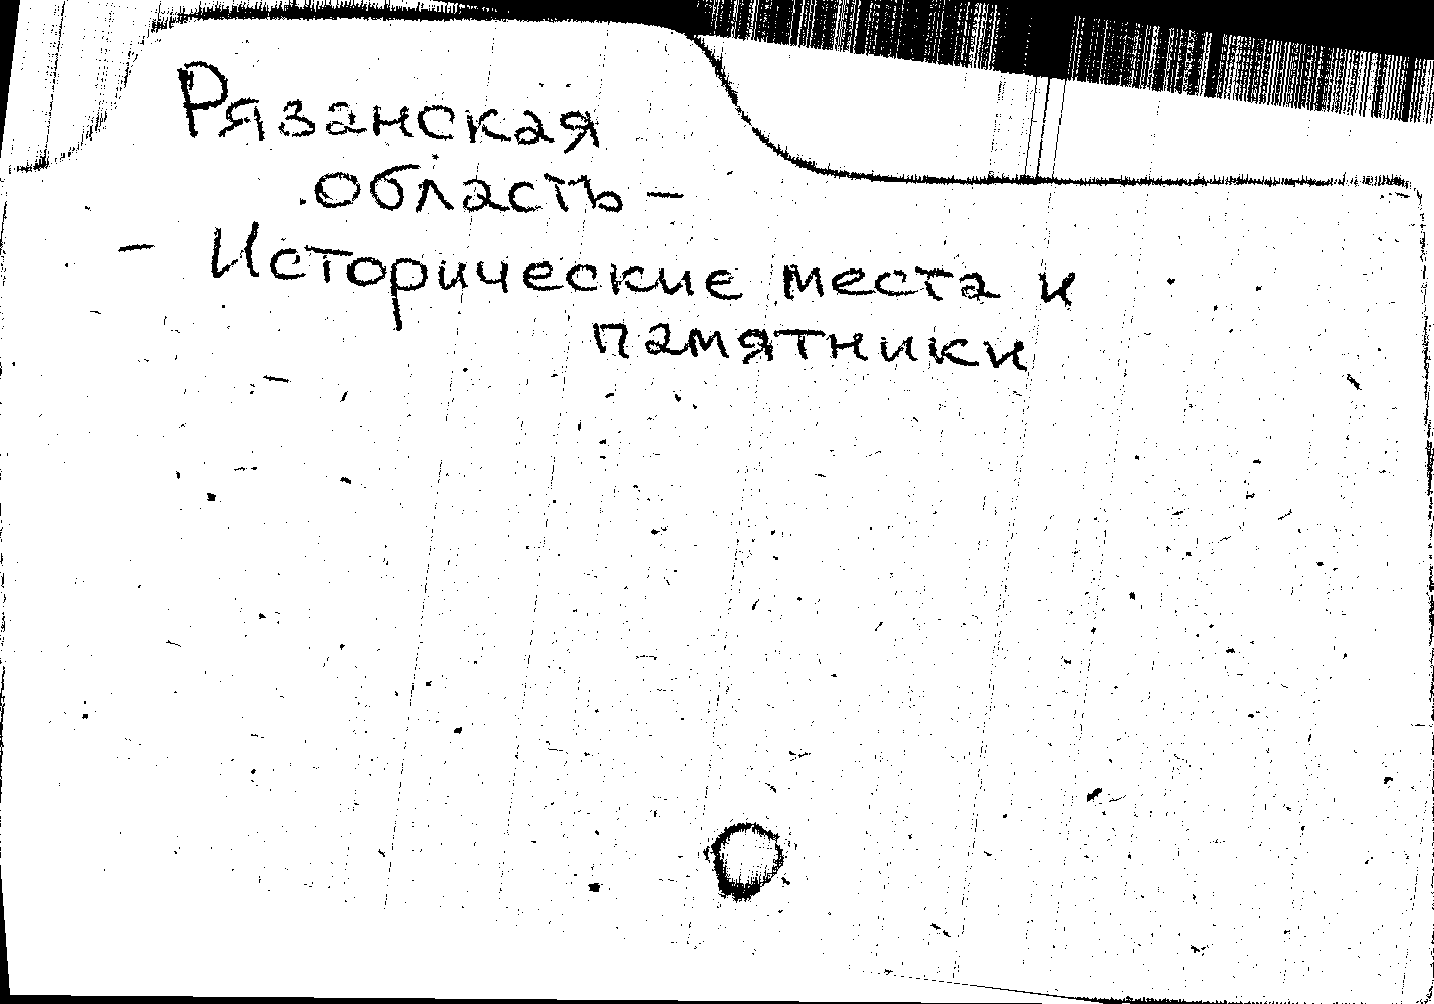 Рязанская
область –
– Исторические места и
памятники